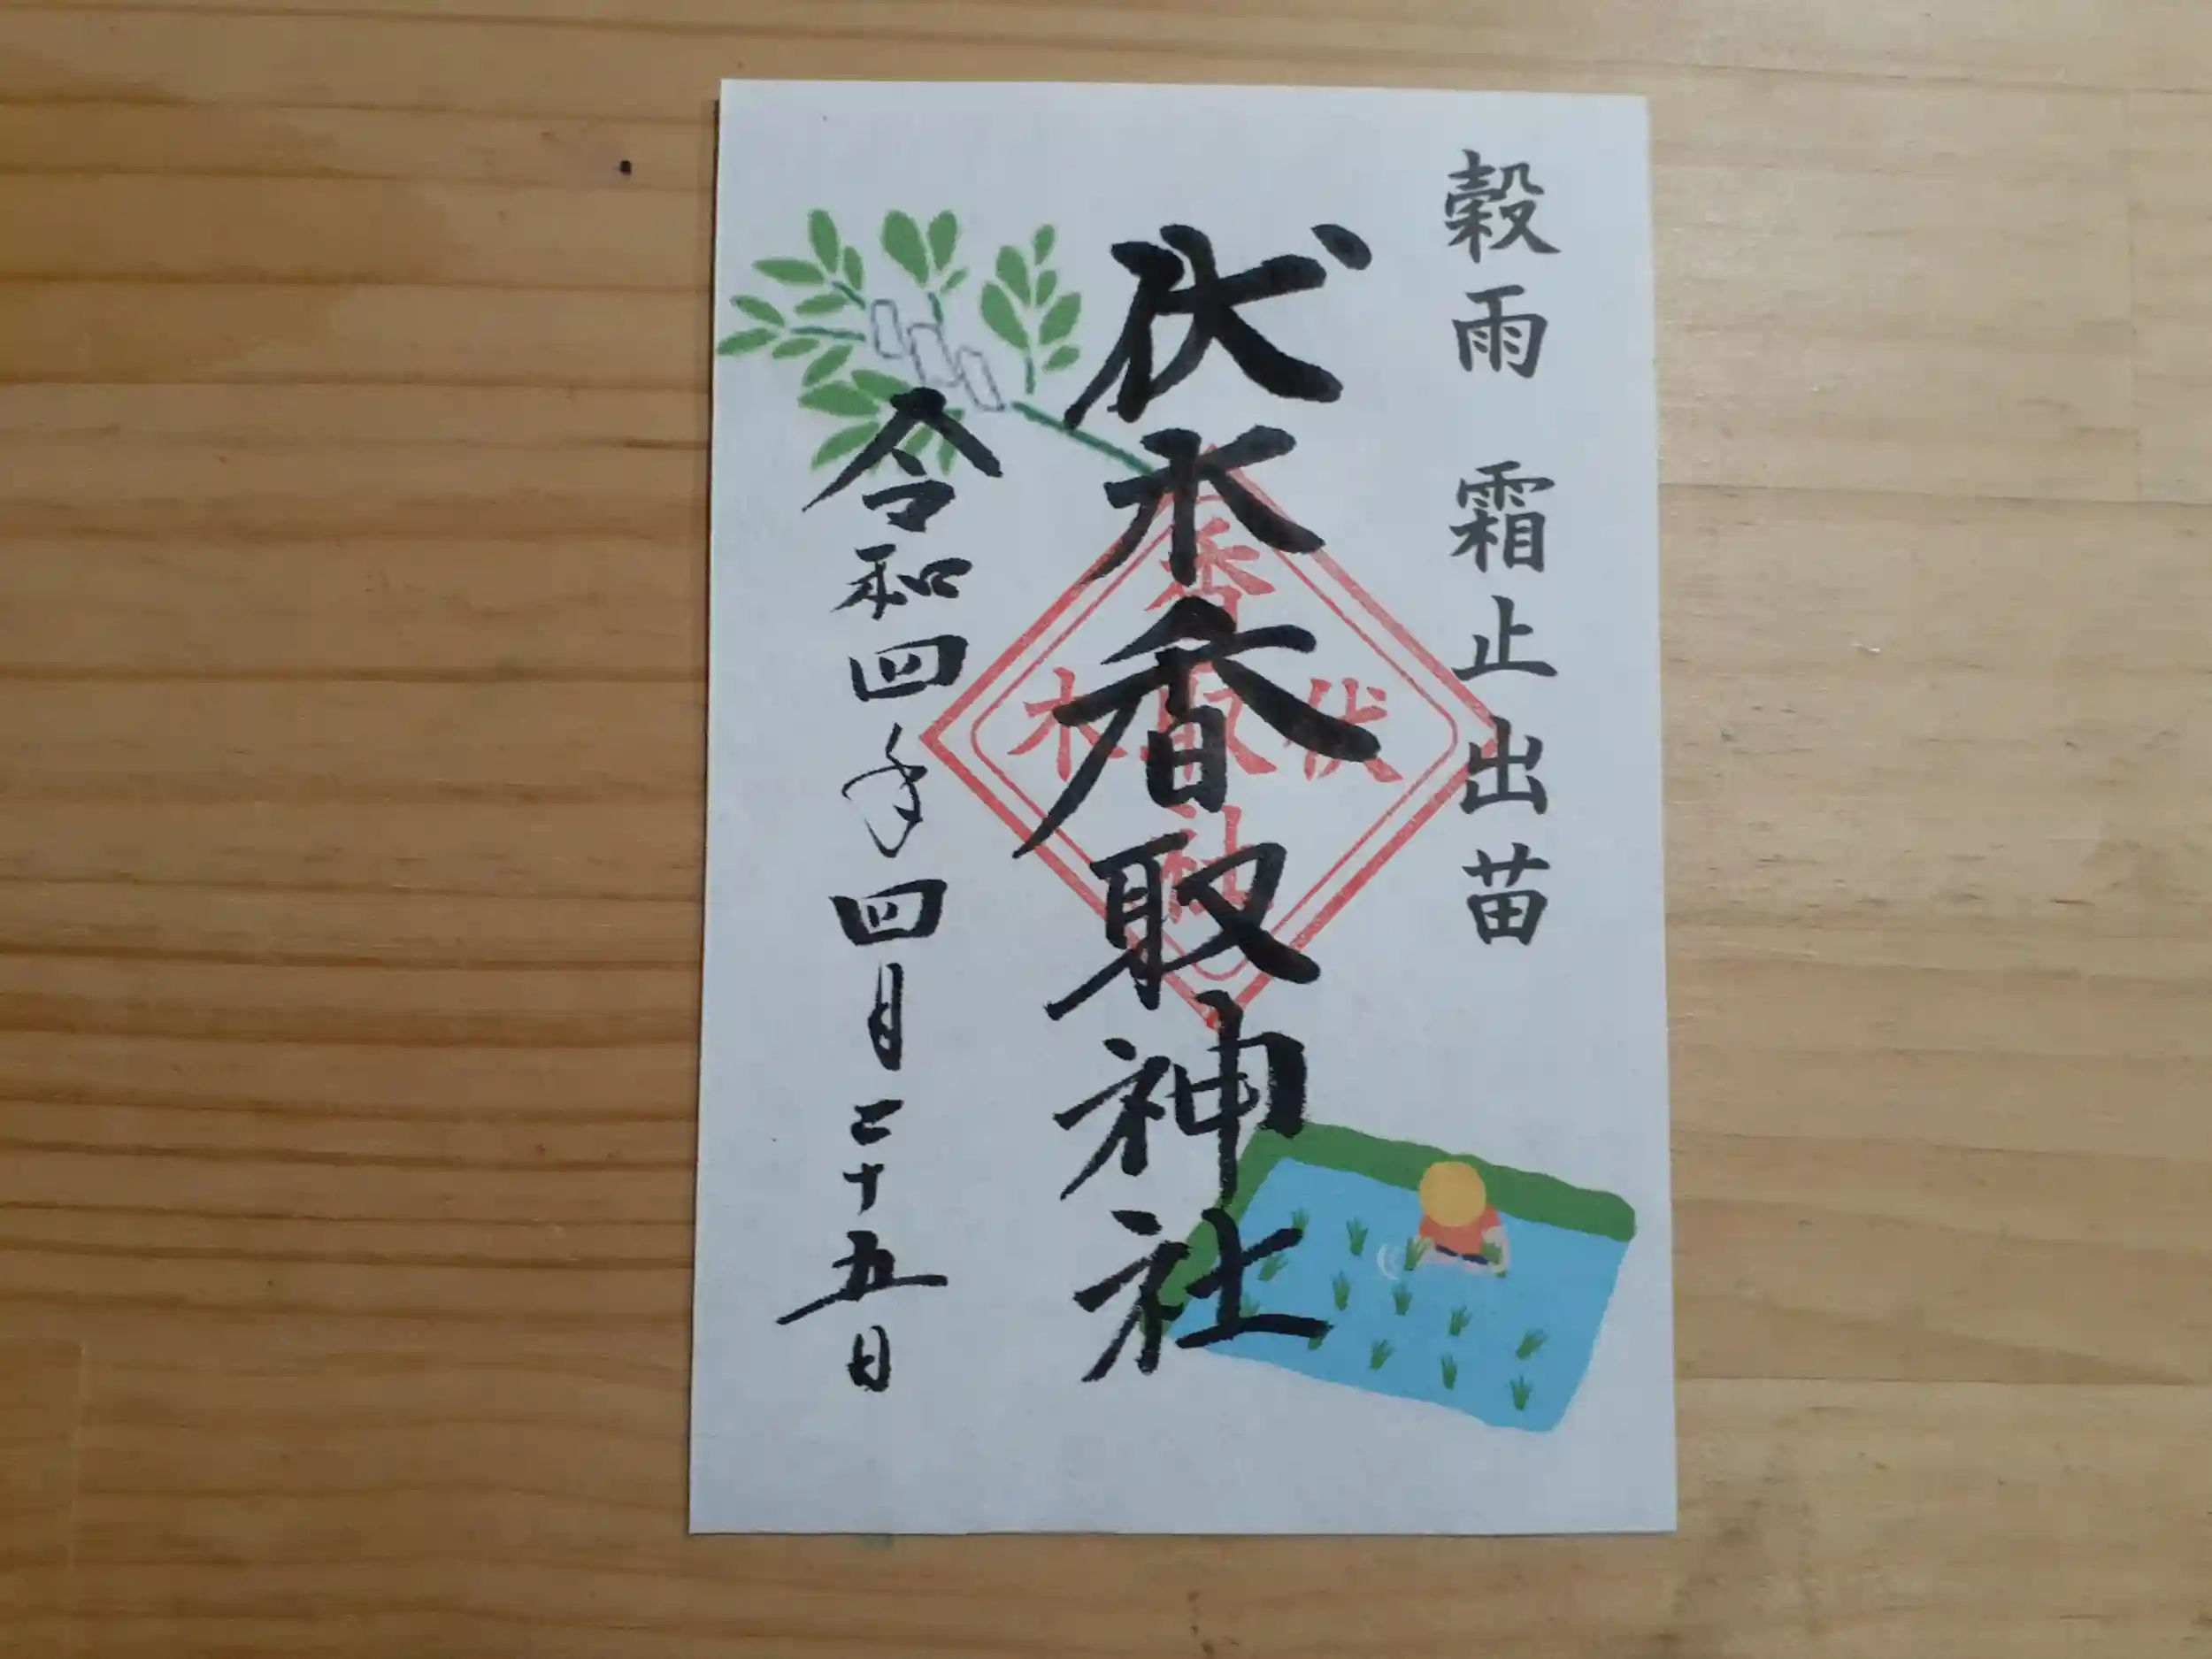 穀雨 霜止出苗
伏木香取神社
香
伏取木
社
令和四年四月二十五日